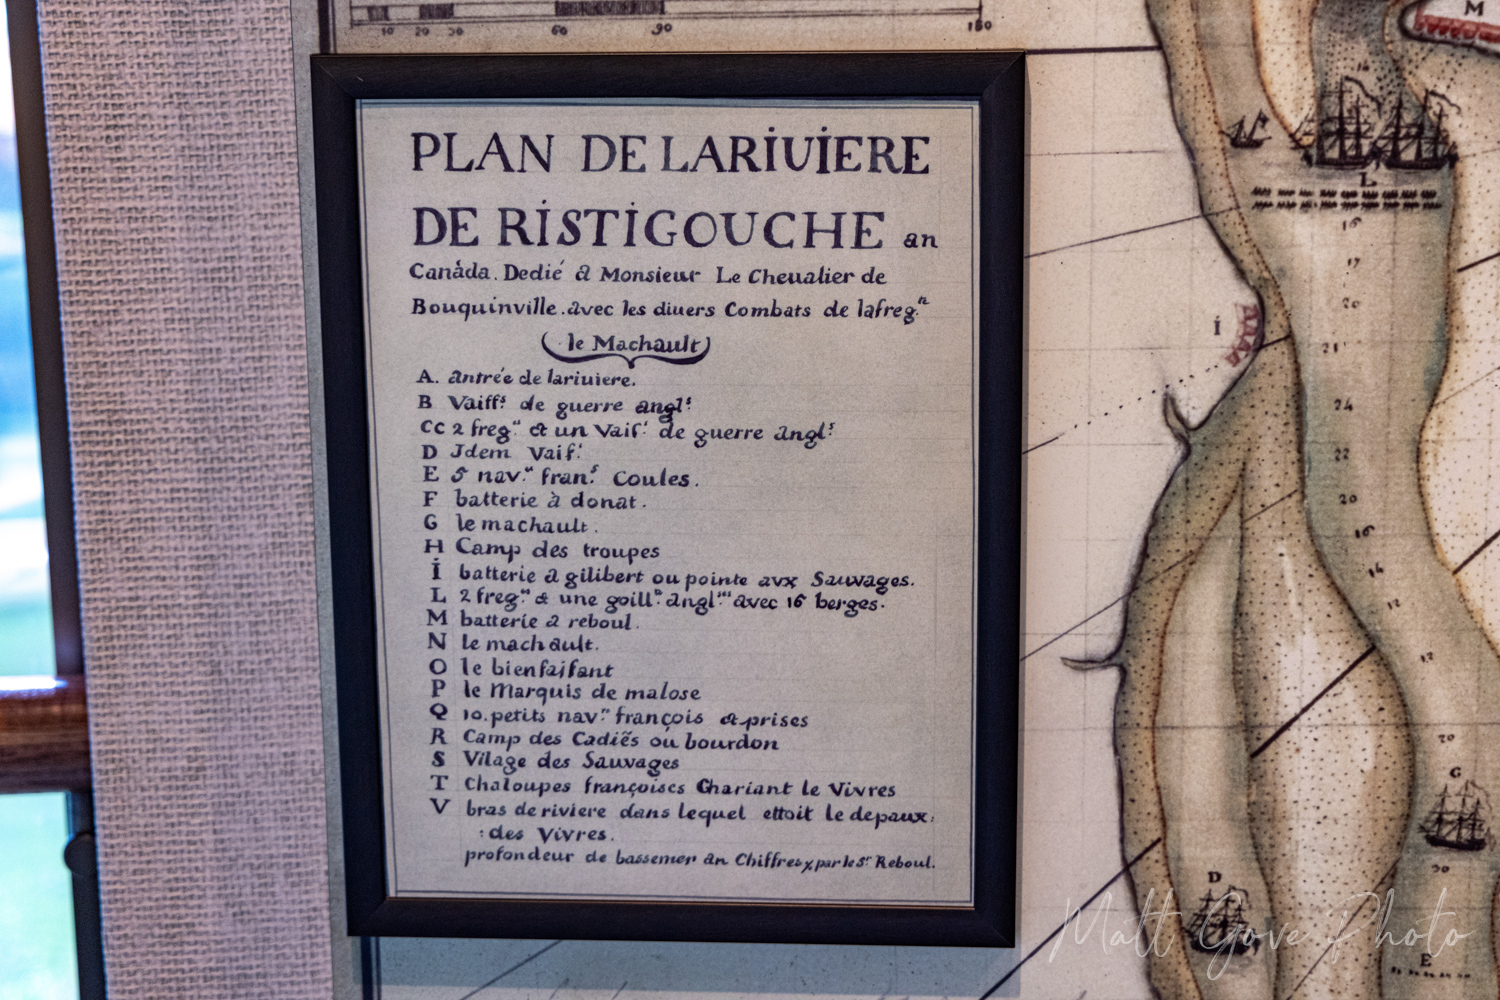 10 20 30 60 90 180
PLAN DE LARIUIERE
DE RISTIGOUCHE an
Canáda. Dedié á Monsieur Le Cheualier de
Bouquinville.avec les diuers Combats de lafreg.te
le Machault
A. antrée de lariuiere.
B Vaiss.s de guerre angl.s
CC 2 freg.tt et un Vais.l de guerre angl.s
D Jdem Vais.l
E 5 nav.rs fran.s Coules.
F batterie à donat.
G le machault.
H Camp des troupes
İ batterie a gilibert ou pointe avx Sauvages.
L 2 freg.tt & une goill.te angl.ses avec 16 berges.
M batterie a reboul.
N le machault.
O le bienfaisant
P le Marquis de malose
Q 10. petits nav.rs françois et prises
R Camp des Cadiẽs ou bourdon
S Vilage des Sauvages
T Chaloupes françoises Chariant le Vivres
V bras de riviere dans lequel ettoit le depaux:
:des Vivres.
profondeur de bassemer an Chiffres, par le S.r Reboul.
M
L
16
17
20
İ
21
24
22
20
16
14
12
12
20
G
30
D
E
Matt Gove Photo